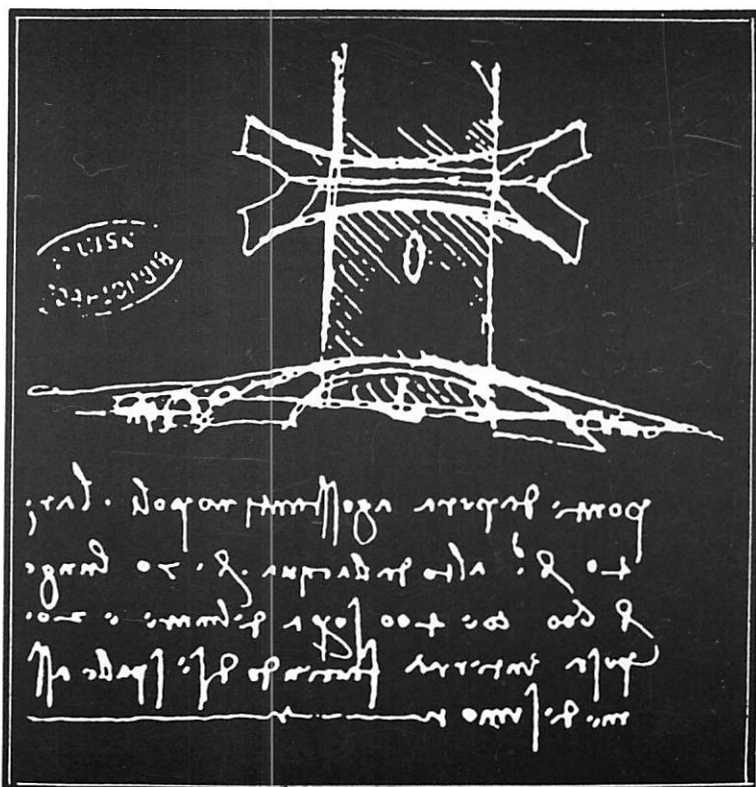 ponte da pera a gosstantinopoli . lar
40 br alto dallacqua br 70 lungo
br 600 coe 400 sopra del mare e 200
posa in terra facciendo di se spalle a sse
medesimo